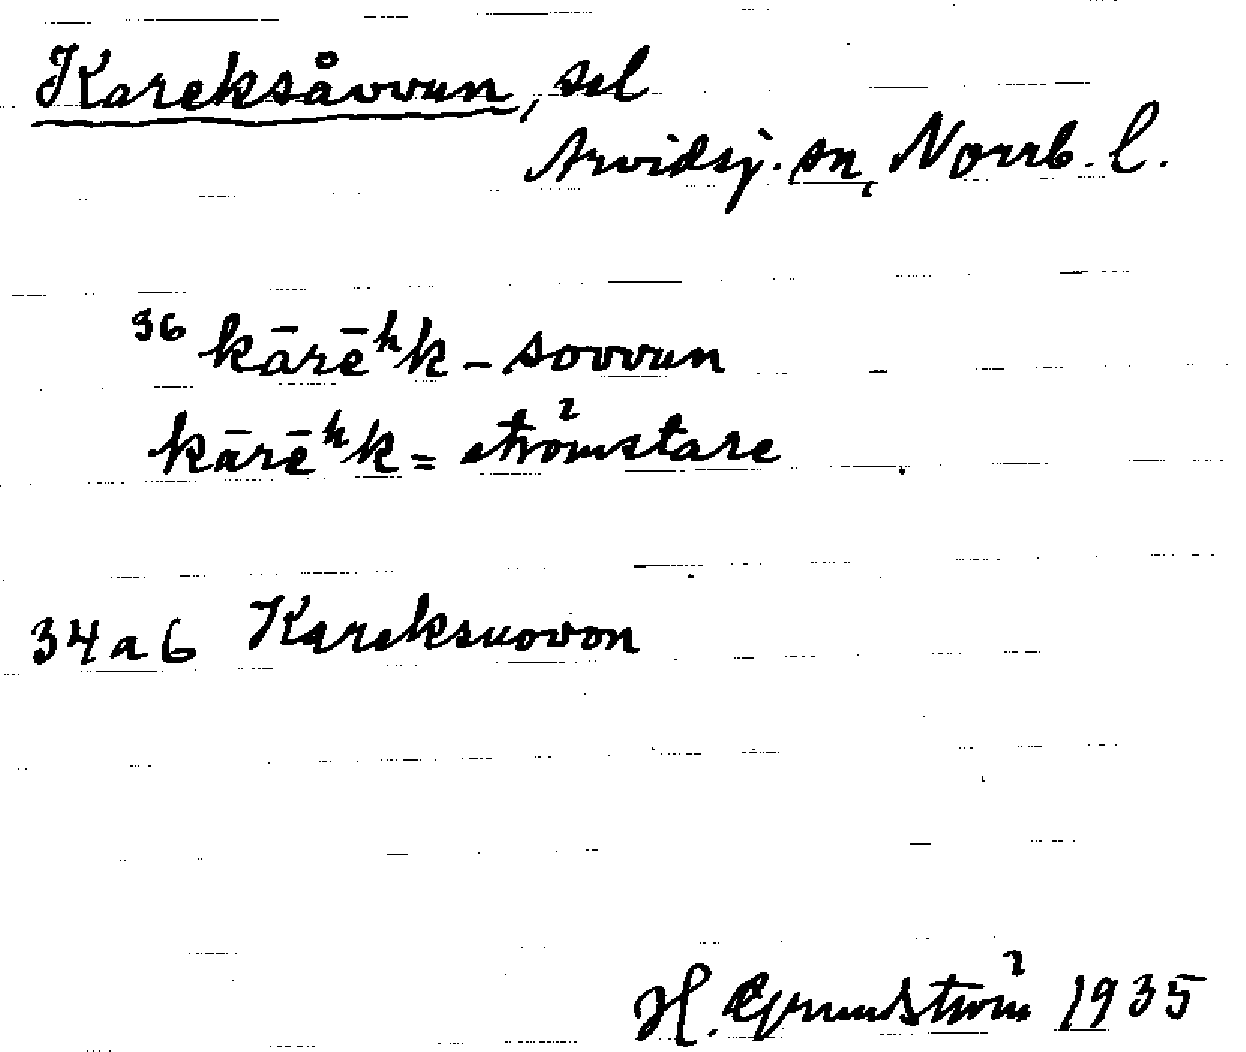 Kareksåvvun, sel
Arvidsj. sn, Norrb. l.
36 kārēʰk - sovvun
kārēʰk = strömstare
34 a 6 Kareksuovon
H. Grundström 1935